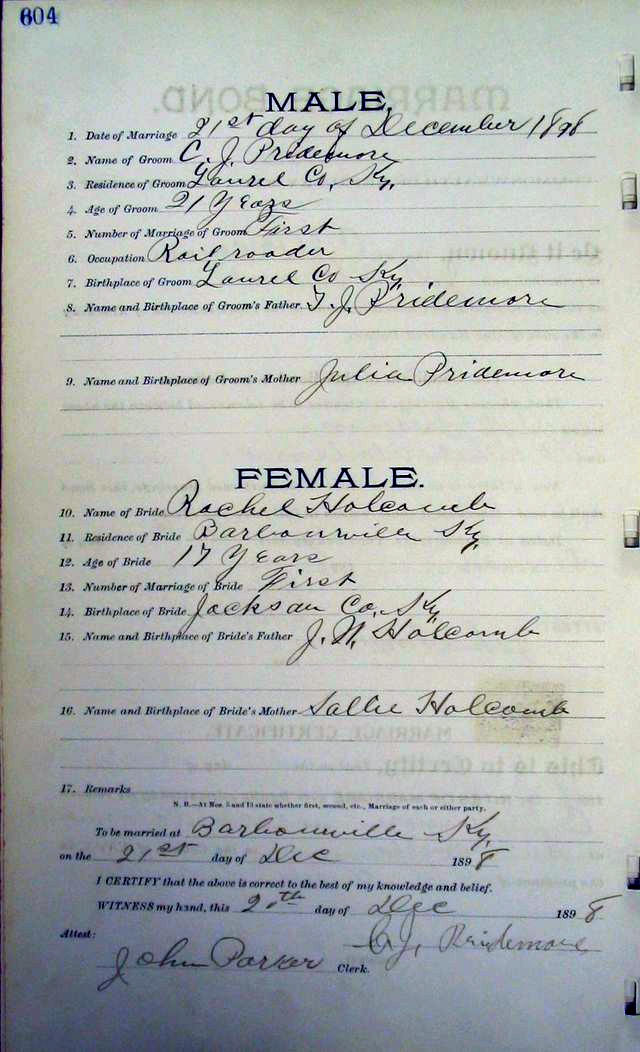 604
MALE.
1. Date of Marriage 21st day of December 1898
2. Name of Groom C. J. Pridemore
3. Residence of Groom Laurel Co, Ky,
4. Age of Groom 21 Years
5. Number of Marriage of Groom First
6. Occupation Railroader
7. Birthplace of Groom Laurel Co Ky,
8. Name and Birthplace of Groom's Father T. J. Pridemore
9. Name and Birthplace of Groom's Mother Julia Pridemore
FEMALE.
10. Name of Bride Rachel Holcomb
11. Residence of Bride Barbourville Ky,
12. Age of Bride 17 Years
13. Number of Marriage of Bride First
14. Birthplace of Bride Jackson Co, Ky,
15. Name and Birthplace of Bride's Father J. N. Holcomb
16. Name and Birthplace of Bride's Mother Sallie Holcomb
17. Remarks
N. B.—At Nos. 5 and 13 state whether first, second, etc., Marriage of each or either party.
To be married at Barbourville Ky.
on the 21st day of Dec 1898
I CERTIFY that the above is correct to the best of my knowledge and belief.
WITNESS my hand, this 20th day of Dec 1898
C. J. Pridemore
Attest:
John Parker Clerk.